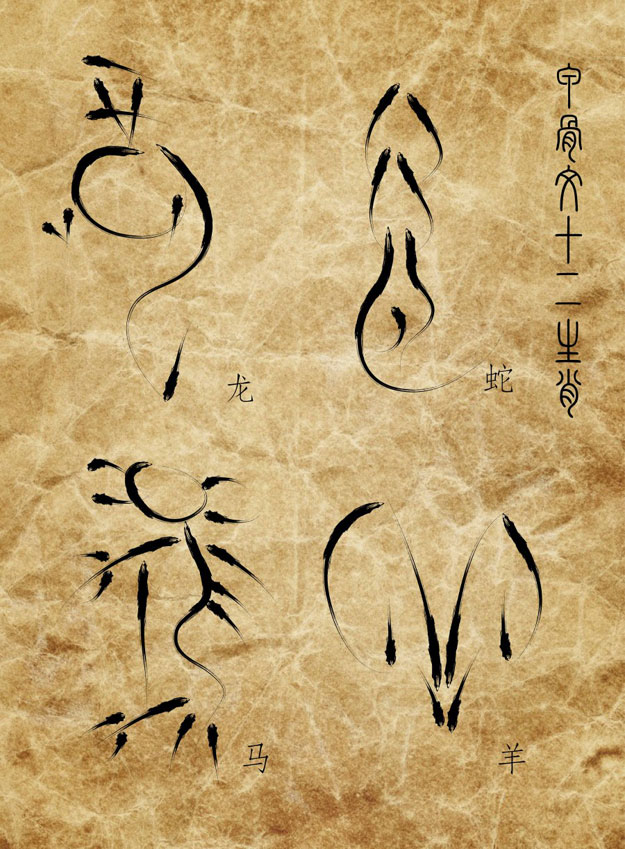 甲骨文十二生肖
龙
蛇
马
羊